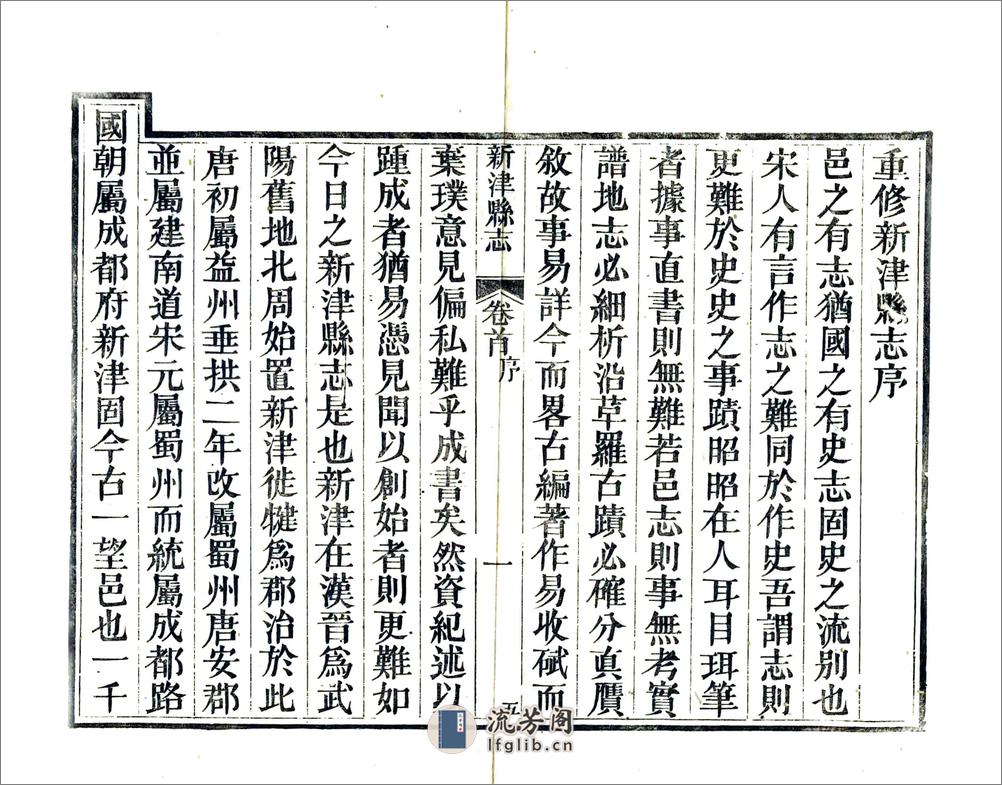 重修新津縣志序
邑之有志猶國之有史志固史之流別也
宋人有言作志之難同於作史吾謂志則
更難於史史之事蹟昭昭在人耳目珥筆
者據事直書則無難若邑志則事無考實
譜地志必細析沿革羅古蹟必確分眞贋
敘故事易詳今而畧古編著作易收碔而
新津縣志 卷首 序 一
棄璞意見偏私難乎成書矣然資紀述以
踵成者猶易憑見聞以創始者則更難如
今日之新津縣志是也新津在漢晉爲武
陽舊地北周始置新津徙犍爲郡治於此
唐初屬益州垂拱二年改屬蜀州唐安郡
並屬建南道宋元屬蜀州而統屬成都路
國朝屬成都府新津固今古一望邑也一千
流芳阁
lfglib.cn